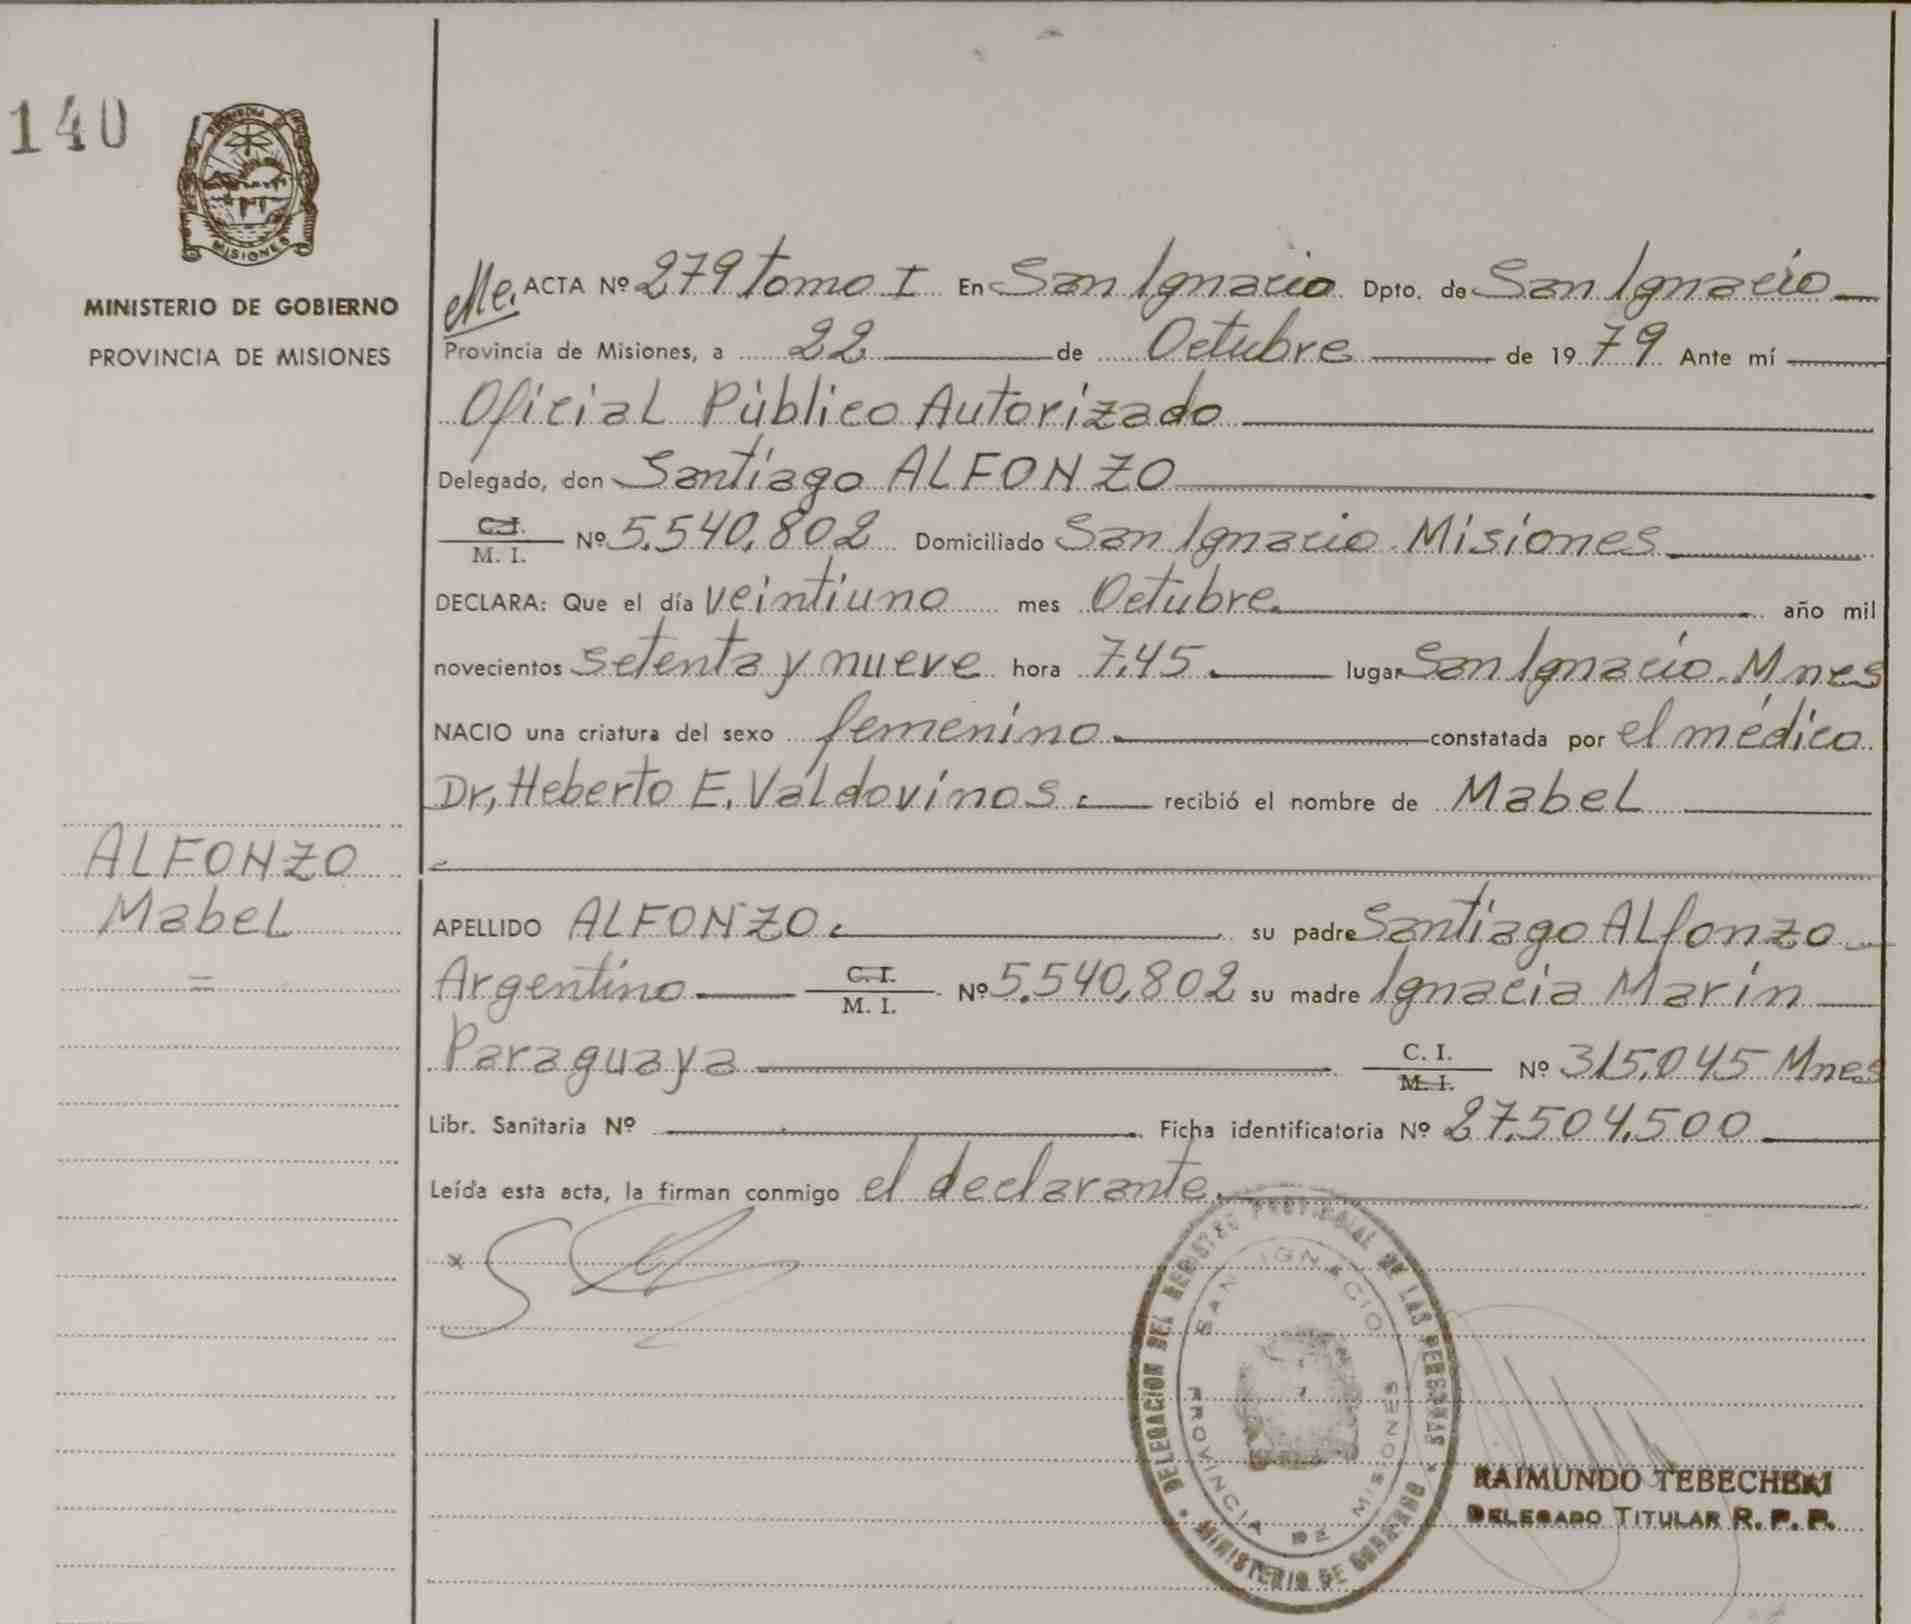 140
MISIONES
MINISTERIO DE GOBIERNO
PROVINCIA DE MISIONES
ALFONZO
Mabel
=
Me. ACTA Nº 279 tomo I En San Ignacio Dpto. de San Ignacio
Provincia de Misiones, a 22 de Octubre de 1979 Ante mí
Oficial Público Autorizado
Delegado, don Santiago ALFONZO
C.I. / M. I. Nº 5.540.802 Domiciliado San Ignacio. Misiones
DECLARA: Que el día veintiuno mes Octubre. año mil
novecientos setenta y nueve hora 7.45. lugar San Ignacio. Mnes
NACIO una criatura del sexo femenino. constatada por el médico
Dr, Heberto E. Valdovinos. recibió el nombre de Mabel
APELLIDO ALFONZO. su padre Santiago Alfonzo
Argentino C.I. / M. I. Nº 5.540.802 su madre Ignacia Marín
Paraguaya C. I. / M.I. Nº 315.045 Mnes
Libr. Sanitaria Nº Ficha identificatoria Nº 27.504.500
Leída esta acta, la firman conmigo el declarante.
x
DELEGACION DEL REGISTRO PROVINCIAL DE LAS PERSONAS
SAN IGNACIO
PROVINCIA DE MISIONES
MINISTERIO DE GOBIERNO
RAIMUNDO TEBECHEKI
DELEGADO TITULAR R. P. P.